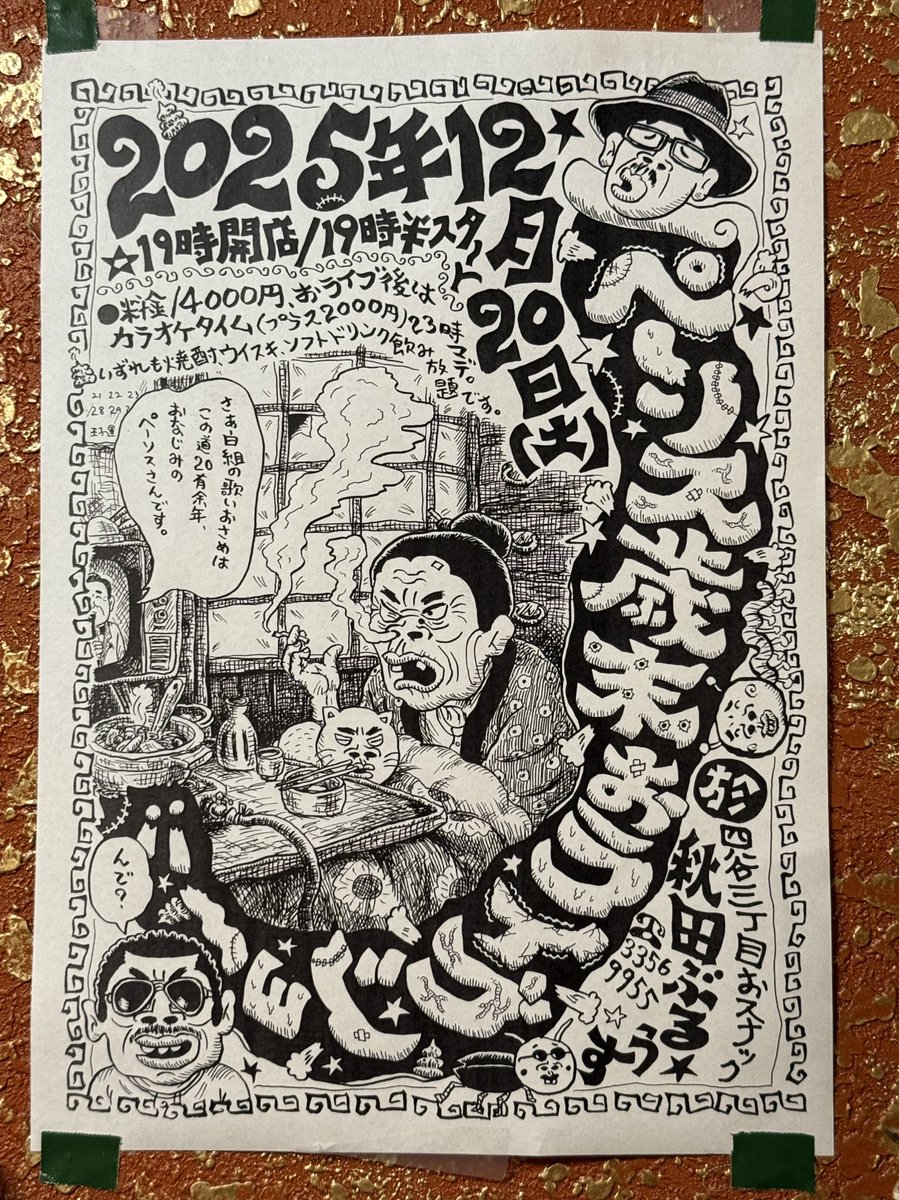 2025年12月20日(土)
☆19時開店/19時半スタート
●料金/4000円、おライブ後は
カラオケタイム(プラス2000円)23時マデ。
いずれも焼酎、ウイスキ、ソフトドリンク飲み放題です。
21 22 23
28 29
さあ白組の歌いおさめは
この道20有余年、
おなじみの
ペーソスさんです。
ペーソス歳末おこ
於 四谷三丁目おスナック
秋田ぶるうす
☎3356
9955
んで?